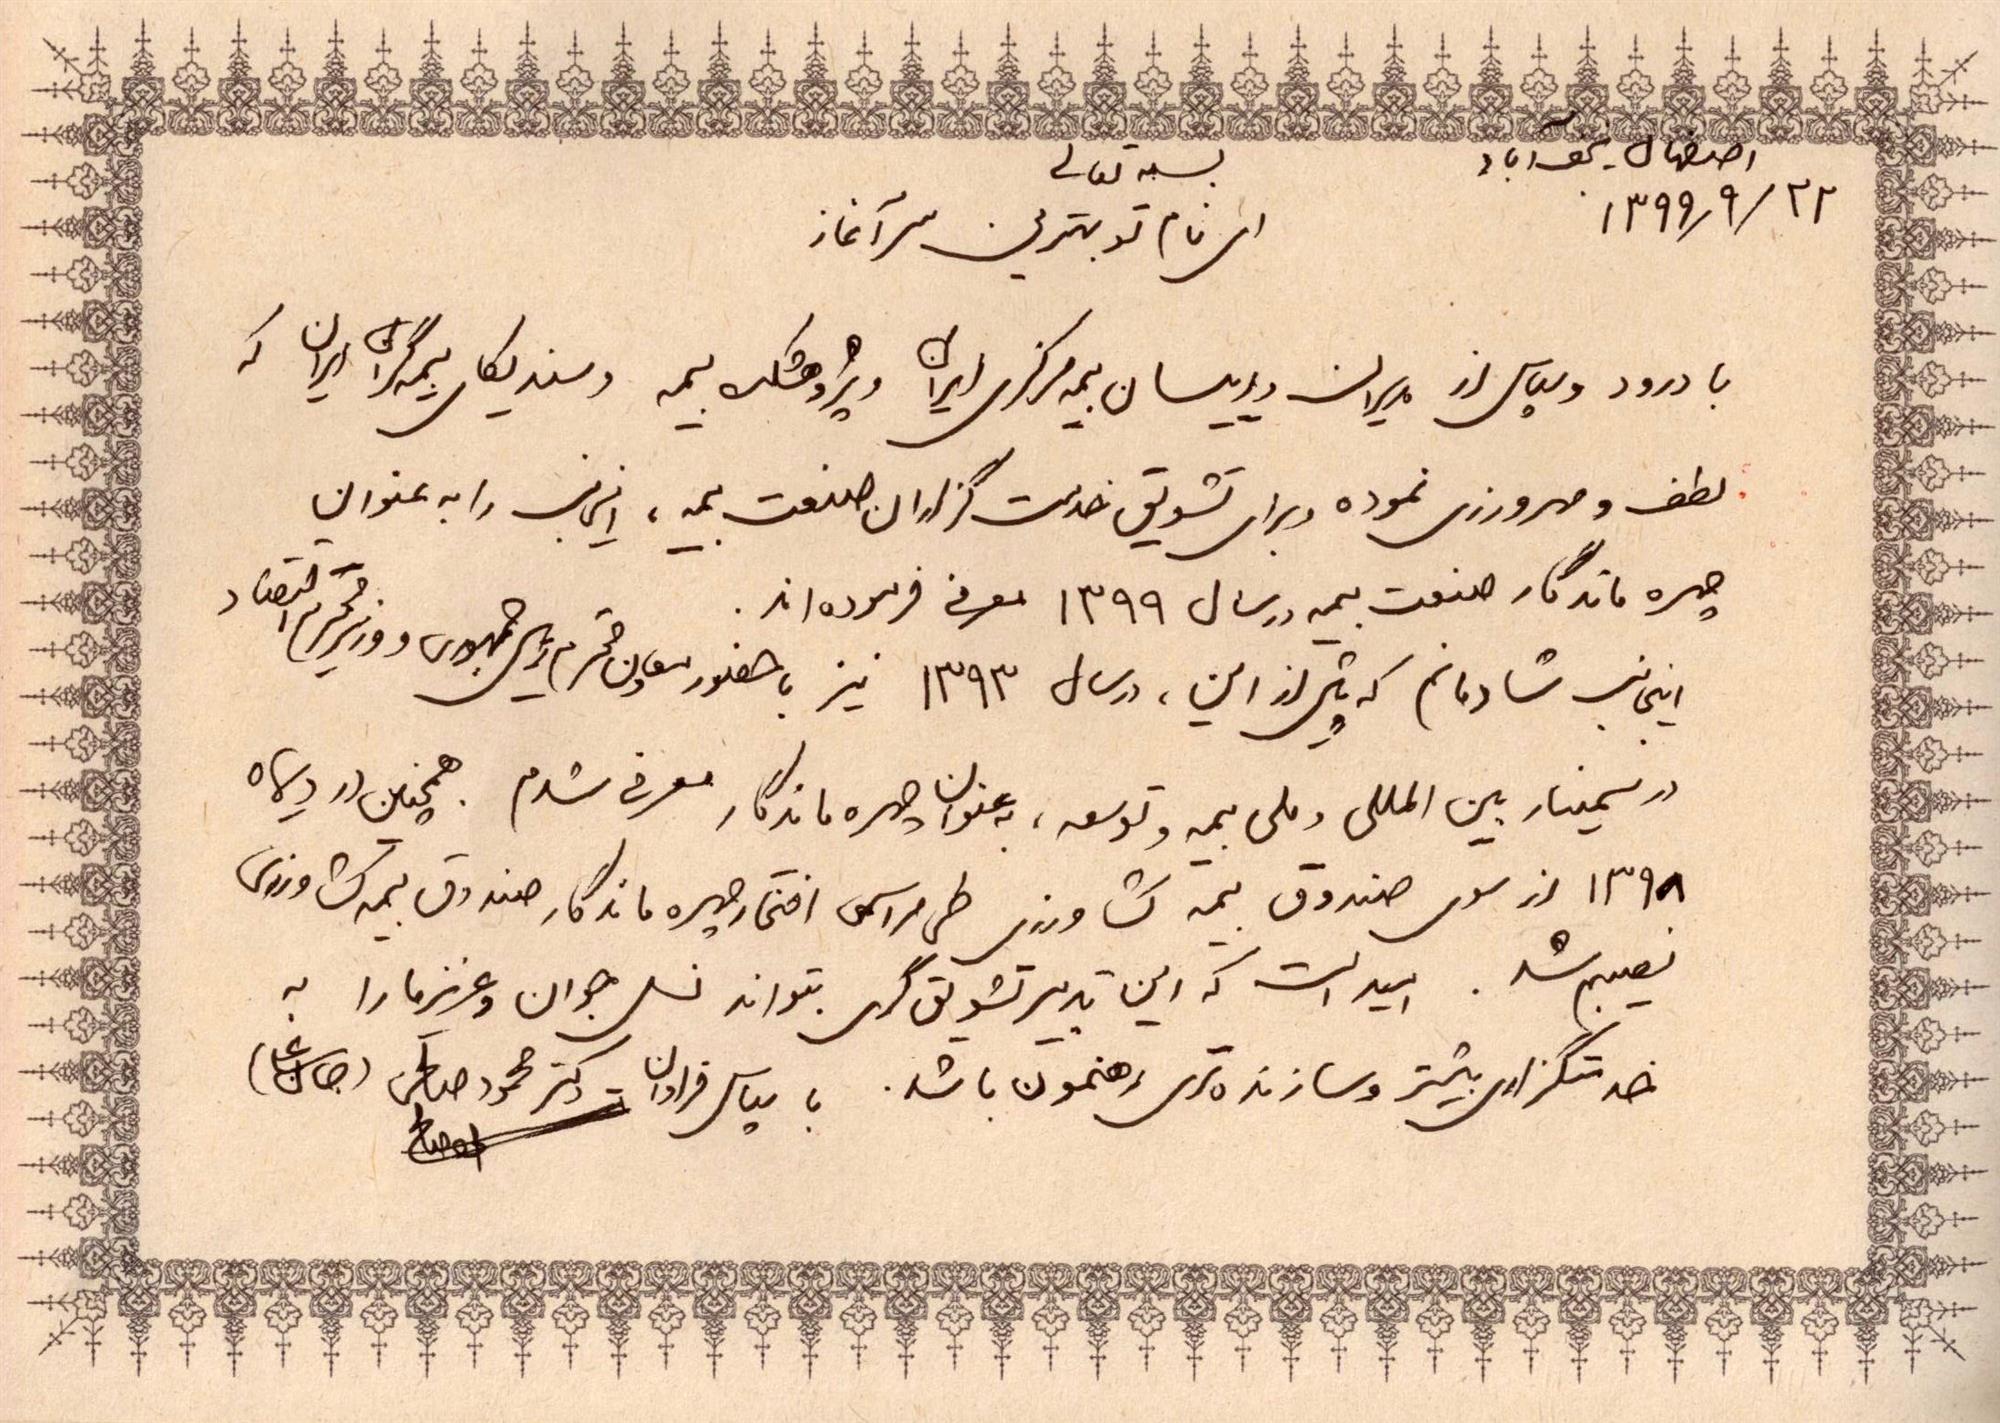 اصفهان - نجف آباد
۱۳۹۹/۹/۲۲
بسمه تعالی
ای نام تو بهترین سر آغاز
با درود و سپاس از مدیران و رییسان بیمه مرکزی ایران و پژوهشکده بیمه و سندیکای بیمه گران ایران که
لطف و مهرورزی نموده و برای تشویق خدمت گزاران صنعت بیمه ، اینجانب را به عنوان
چهره ماندگار صنعت بیمه در سال ۱۳۹۹ معرفی فرموده اند .
اینجانب شادمانم که پیش از این ، در سال ۱۳۹۳ نیز با حضور معاون محترم رییس جمهوری و وزیر محترم اقتصاد
در سمینار بین المللی و ملی بیمه و توسعه ، به عنوان چهره ماندگار معرفی شدم . همچنین در دیماه
۱۳۹۸ از سوی صندوق بیمه کشاورزی طی مراسمی افتخار چهره ماندگار صندوق بیمه کشاورزی
نصیبم شد . امید است که این تدبیر تشویق گری بتواند نسل جوان و عزیز ما را به
خدمتگزاری بیشتر و سازنده تری رهنمون باشد . با سپاس فراوان - دکتر محمود صالحی